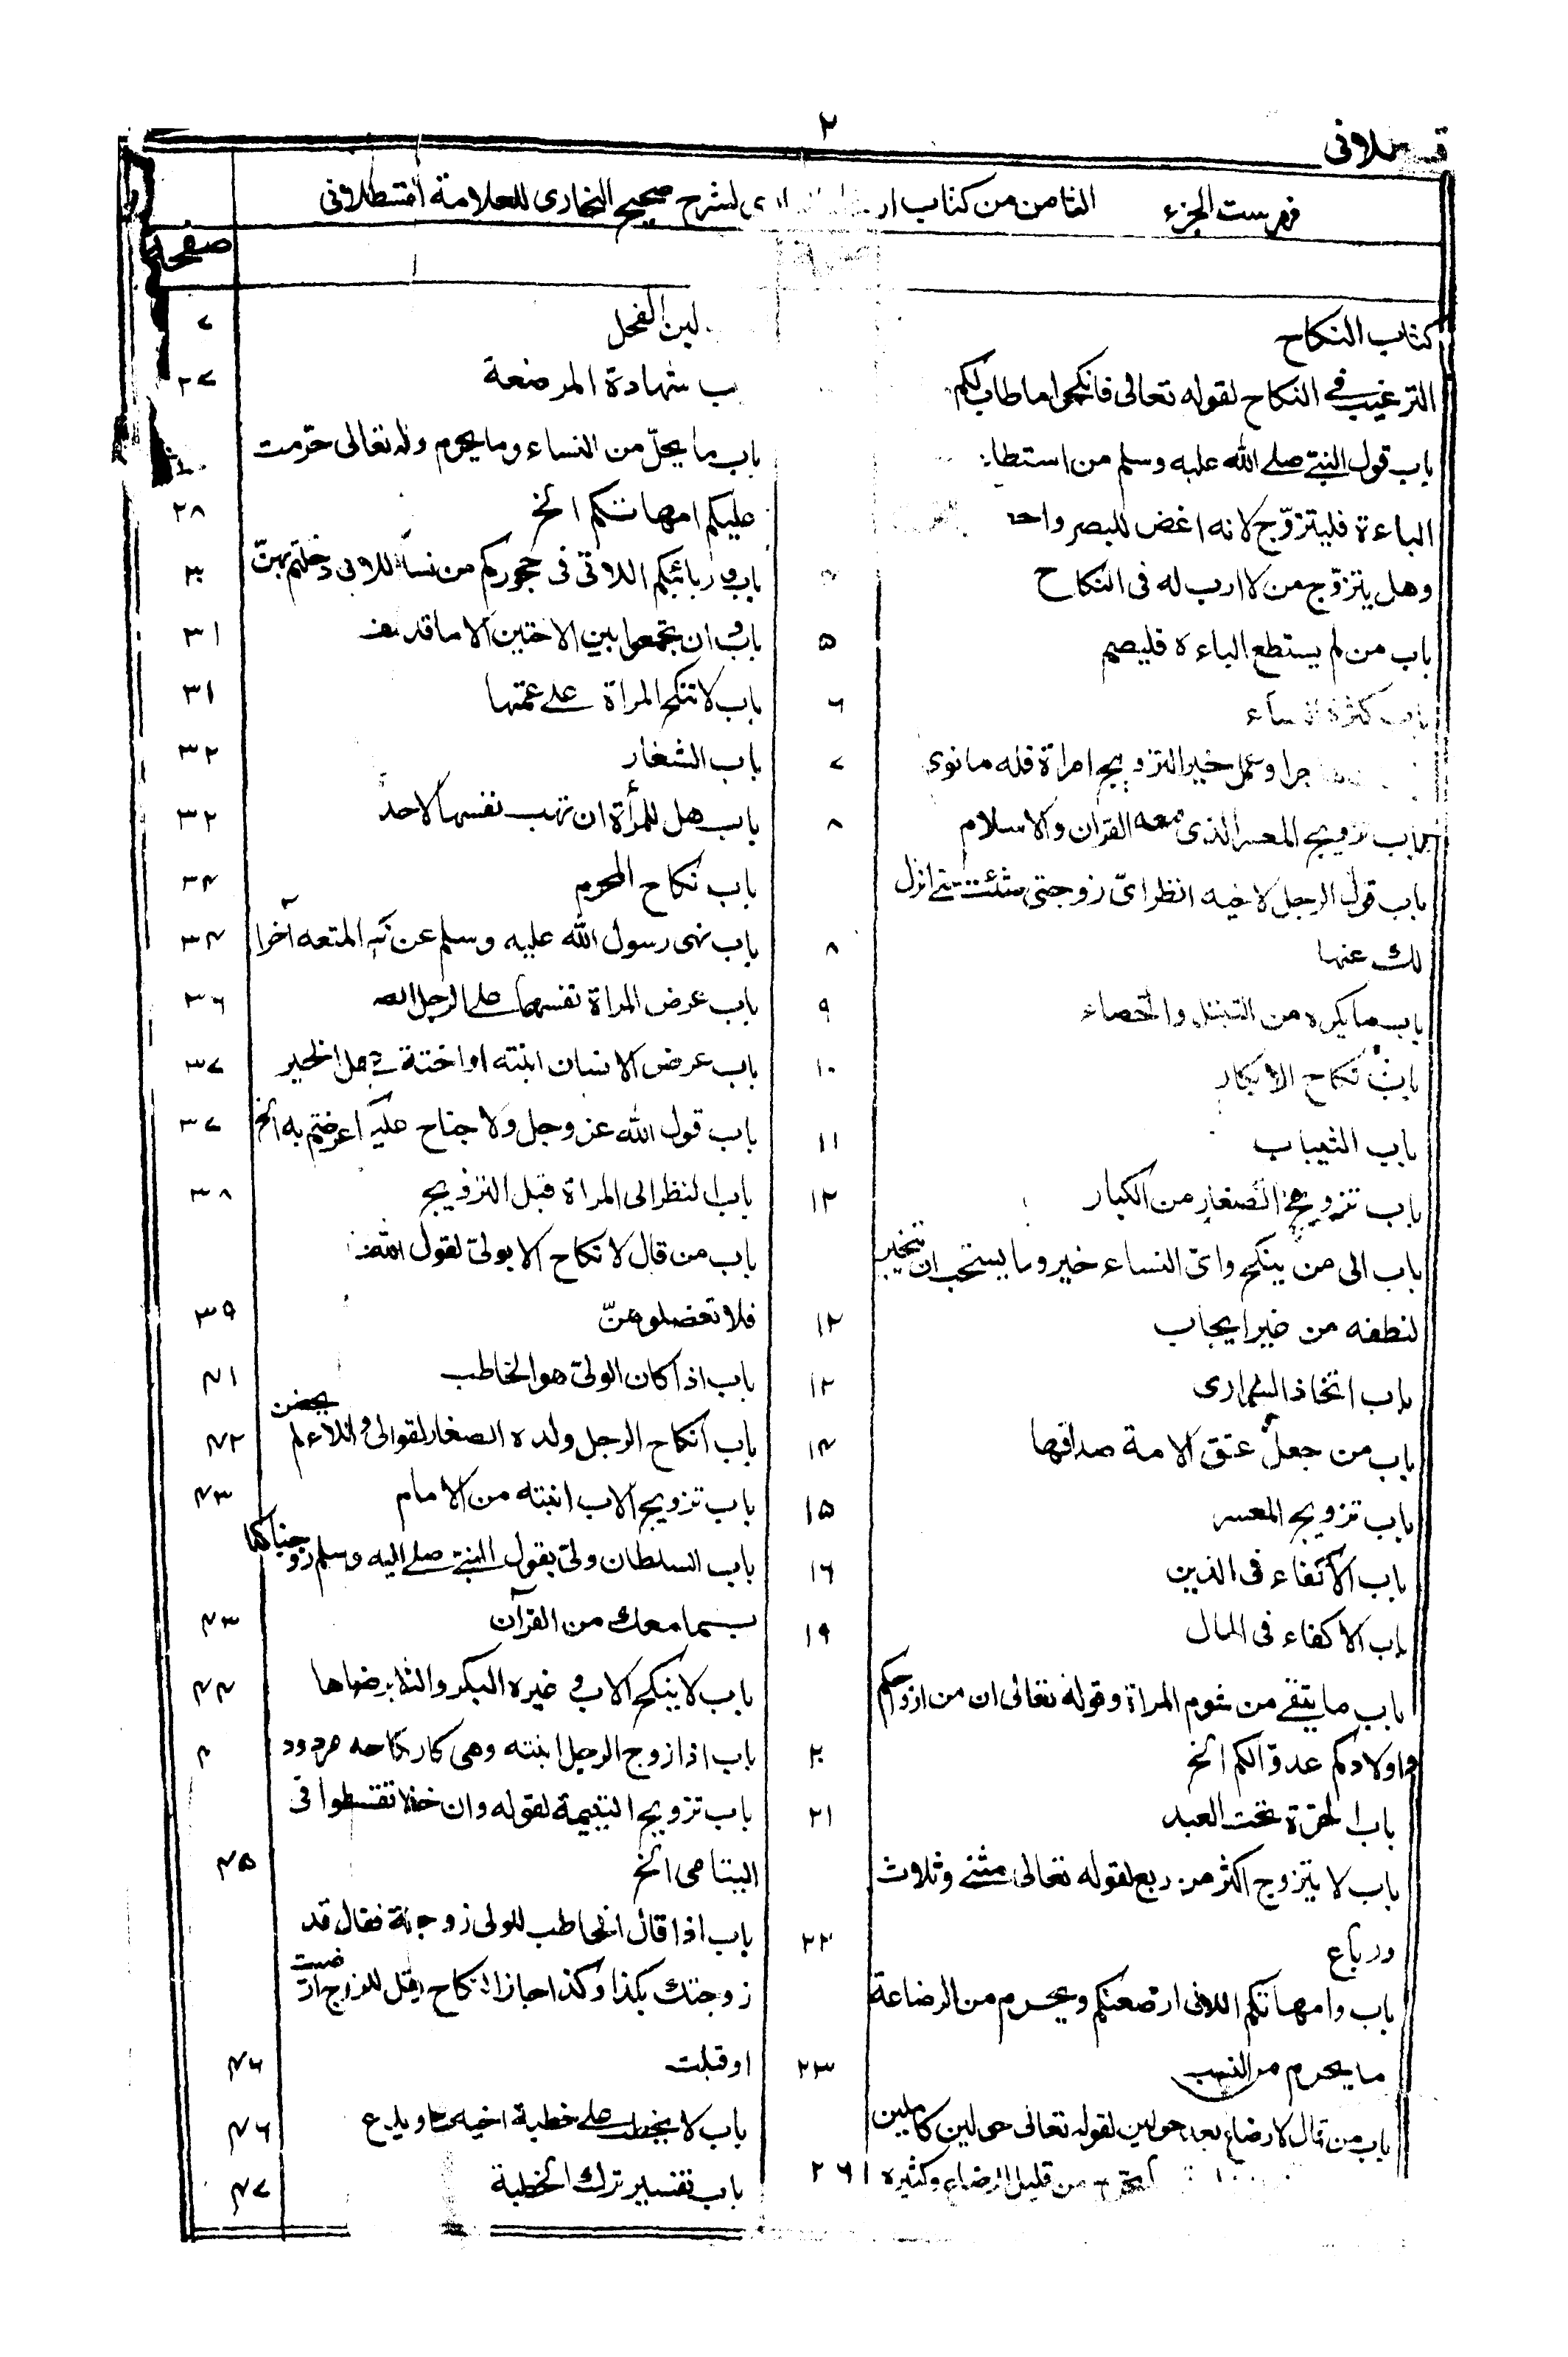 ٢
فهرست الجزء الثامن من كتاب لشرح صحيح البخارى للعلامة القسطلانى
صفحة
كتاب النكاح
الترغيب فى النكاح لقوله تعالى فانكحوا ما طاب لكم
باب قول النبى صلى الله عليه وسلم من استطاع
الباءة فليتزوّج لانه اغض للبصر واحصن
وهل يتزوّج من لا ارب له فى النكاح
باب من لم يستطع الباءة فليصم ٥
باب كثرة النساء ٦
هاجر او عمل خيرا لتزويج امراة فله ما نوى ٧
باب تزويج المعسر الذى معه القران والاسلام ٨
باب قول الرجل لاخيه انظر اىّ زوجتى شئت حتى انزل
لك عنها ٨
باب ما يكره من التبتل والخصاء ٩
باب نكاح الابكار ١٠
باب الثيبات ١١
باب تزويج الصغار من الكبار ١٢
باب الى من ينكح واىّ النساء خير وما يستحب ان يتخير
لنطفه من غير ايجاب ١٢
باب اتخاذ السرارى ١٢
باب من جعل عتق الامة صداقها ١٤
باب تزويج المعسر ١٥
باب الاكفاء فى الدين ١٦
باب الاكفاء فى المال ١٩
باب ما يتقى من شوم المراة وقوله تعالى ان من ازواجكم
واولادكم عدوّا لكم الخ ٢٠
باب الحرّة تحت العبد ٢١
باب لا يتزوج اكثر من اربع لقوله تعالى مثنى وثلاث
ورباع ٢٢
باب وامهاتكم اللاتى ارضعنكم ويحرم من الرضاعة
ما يحرم من النسب ٢٣
باب من قال لا رضاع بعد حولين لقوله تعالى حولين كاملين
من قليل الرضاع وكثيره ٢٦
لبن الفحل ٢٧
باب شهادة المرضعة ٢٧
باب ما يحلّ من النساء وما يحرم وقوله تعالى حرّمت
عليكم امهاتكم الخ ٢٨
باب وربائبكم اللاتى فى حجوركم من نسائكم اللاتى دخلتم بهنّ ٣٠
باب وان تجمعوا بين الاختين الا ما قد سلف ٣١
باب لا تنكح المراة على عمتها ٣١
باب الشغار ٣٢
باب هل للمرأة ان تهب نفسها لاحد ٣٢
باب نكاح المحرم ٣٤
باب نهى رسول الله عليه وسلم عن نكاح المتعه آخرا ٣٤
باب عرض المراة نفسها على الرجل الصالح ٣٦
باب عرض الانسان ابنته او اخته على اهل الخير ٣٧
باب قول الله عز وجل ولا جناح عليكم عرضتم به الخ ٣٧
باب النظر الى المراة قبل التزويج ٣٨
باب من قال لا نكاح الا بولىّ لقول الله
فلا تعضلوهنّ ٣٩
باب اذا كان الولىّ هو الخاطب ٤١
باب انكاح الرجل ولده الصغار لقوله واللاءى لم يحضن ٤٢
باب تزويج الاب ابنته من الامام ٤٣
باب السلطان ولىّ بقول النبى صلى اليه وسلم زوجناكها
بما معك من القرآن ٤٣
باب لا ينكح الاب وغيره البكر والثيب الا برضاها ٤٤
باب اذا زوج الرجل ابنته وهى كارهة نكاحه مردود
باب تزويج اليتيمة لقوله وان خفتم ان لا تقسطوا فى
اليتامى الخ ٤٥
باب اذا قال الخاطب للولى زوجنى فلانة فقال قد
زوجتك بكذا وكذا جاز النكاح وان لم يقل للزوج ارضيت
او قبلت ٤٦
باب لا يخطب على خطبة اخيه حتى ينكح او يدع ٤٦
باب تفسير ترك الخطبة ٤٧